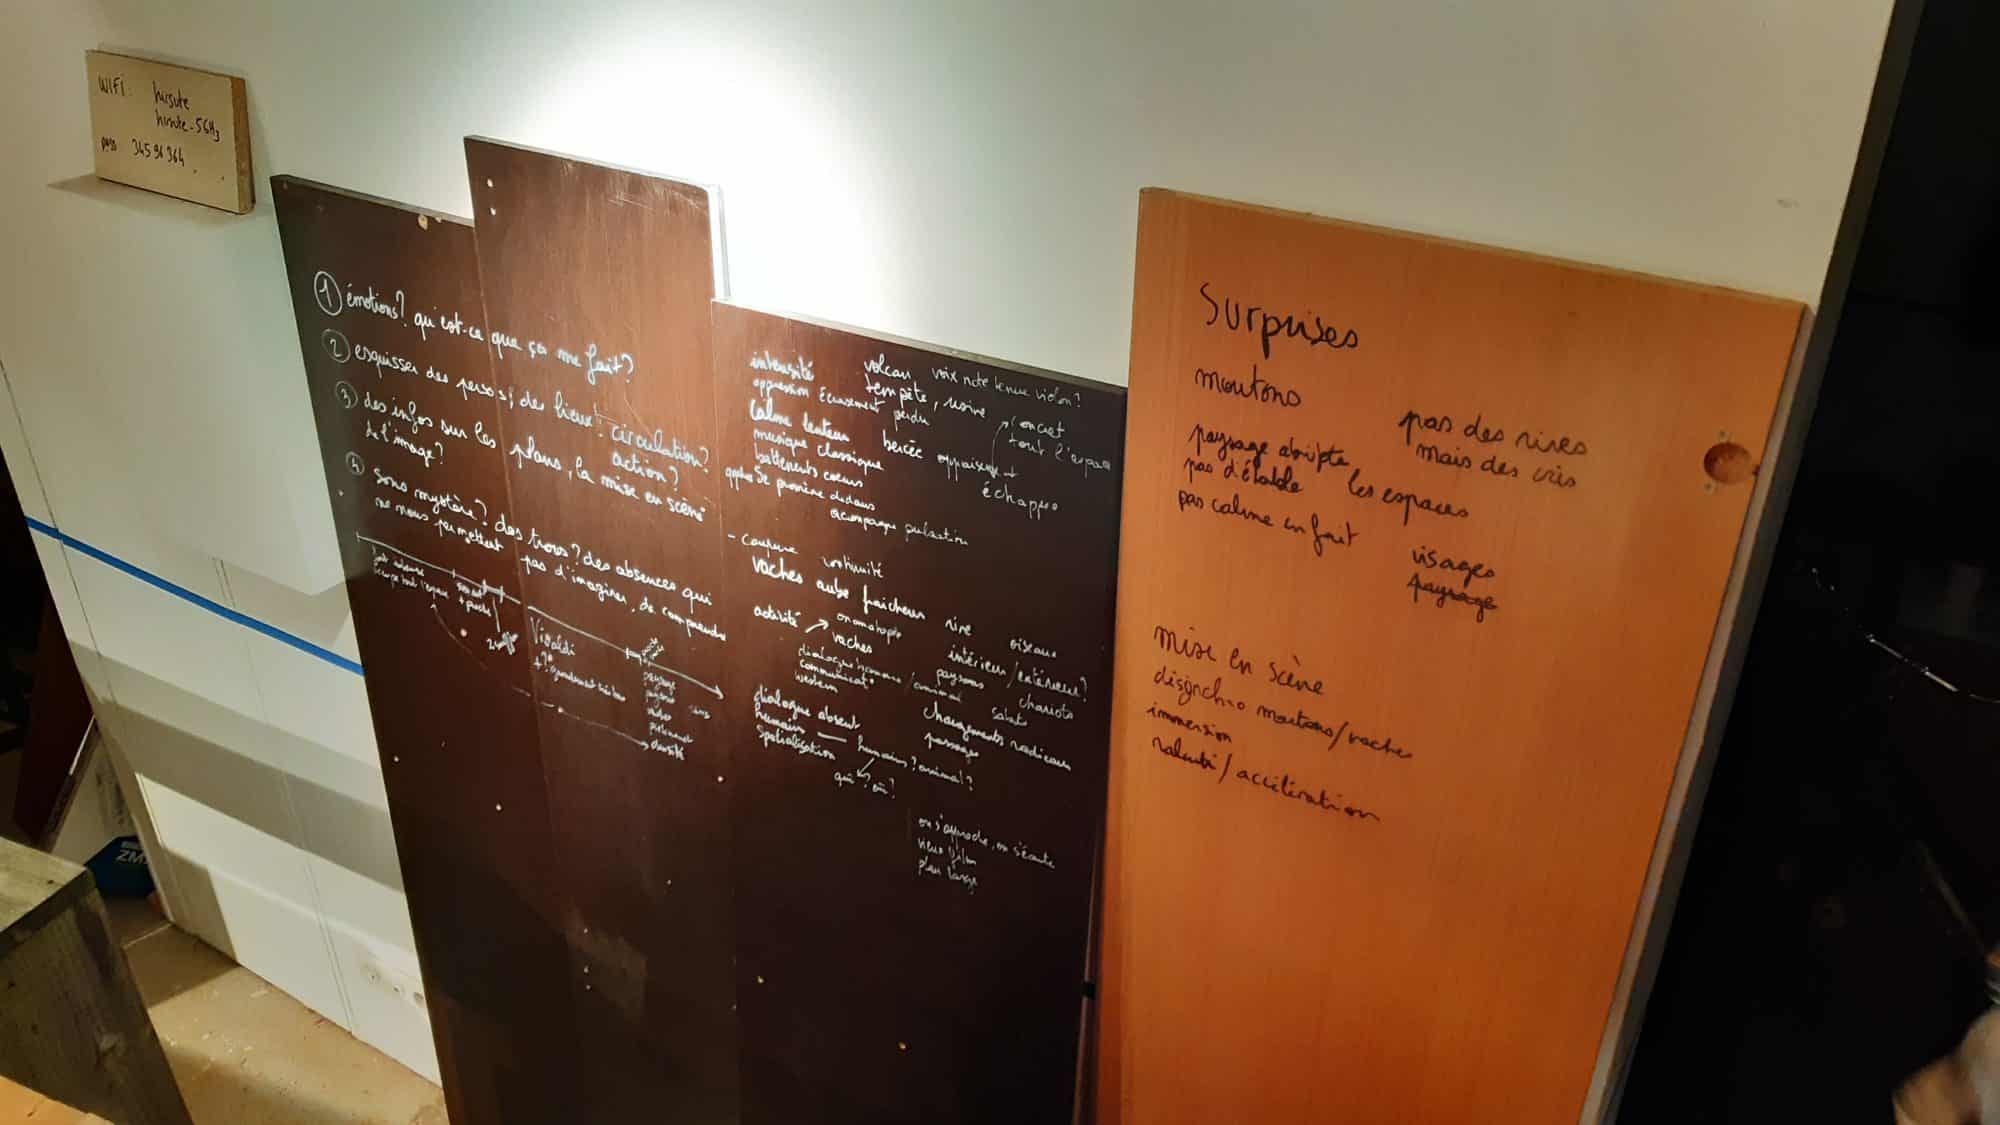 WIFI: hirsute
hirsute-5GHz
pass 34596364
① émotions? qu'est-ce que ça me fait?
② esquisser des persos; des lieux! circulation?
action?
③ des infos sur les plans, la mise en scène
de l'image?
④ Sons mystère? des trous? des absences qui
ne nous permettent pas d'imaginer, de comprendre
occupe tout l'espace
+ proche
Vivaldi
paysage
densité
intensité volcan voix note tenue violon?
oppression écrasement tempête, usine
perdu
concret
tout l'espace
calme lenteur bercée
musique classique
battements coeurs
échappe
accompagne pulsation
- coupure continuité
vaches aube fraîcheur rire oiseaux
activité onomatopée
vaches intérieur/extérieur?
dialogue homme/animal paysans chariots
communicat°
western sabots
dialogue absent changements radicaux
humain — humains? animal? passages
spatialisation
qui? où?
on s'approche, on s'écarte
vieux film
plan large
Surprises
moutons
pas des rires
mais des cris
paysage abrupte les espaces
pas d'étable
pas calme en fait
visages
paysage
mise en scène
moutons/vaches
immersion
ralenti/accélération
ZM